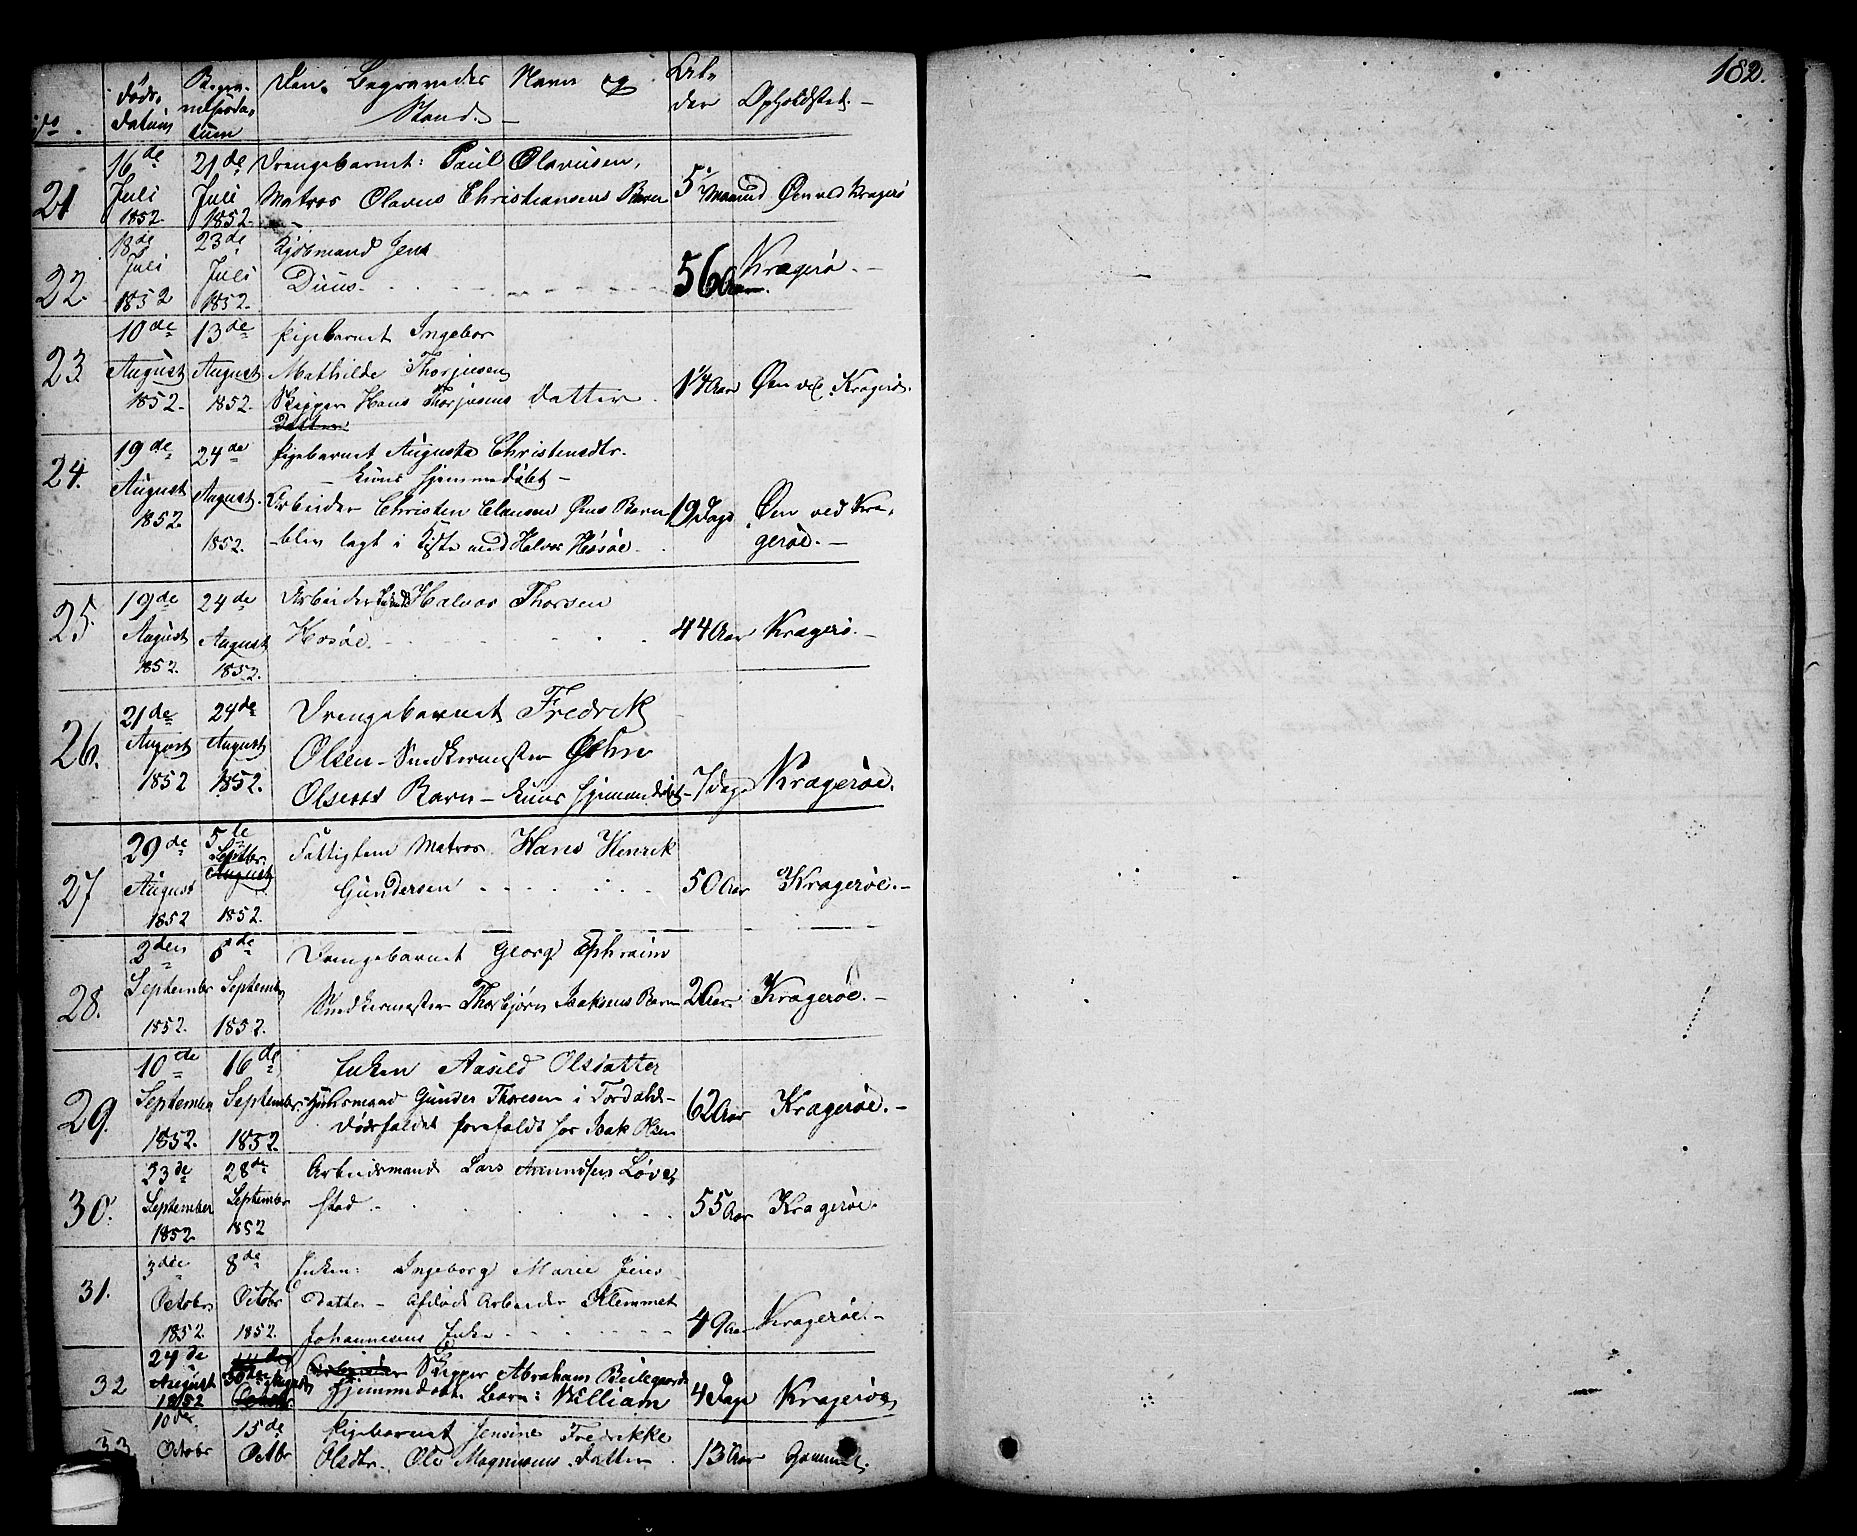 182.
Døds-
datum
Begra-
velsesda-
tum
Den Begravedes Navn og
Stand.
Al-
der
Opholdsted.
21
16de
Juli
1852.
21de
Juli
1852.
Drengebarnet: Paul Olavusen,
Matros Olavus Christiansens Barn
5 Maaned
Øen ved Kragerø
22.
18de
Juli
1852
23de
Juli
1852.
Kjøbmand Jens
Duus.
56 Aar.
Kragerø.
23.
10de
August
1852.
13de
August
1852.
Pigebarnet Ingebor
Mathilde Thorjusen
Skipper Hans Thorjusens Datter
Datter
1¼ Aar
Øen ved Kragerø.
24.
19de
August
1852.
24de
August.
1852.
Pigebarnet Augusta Christensdtr.
- kuns hjemmedøbt -
Arbeider Christen Clausen Øens Barn
- blev lagt i Kiste med Halvor Hosøe.
19 Dage
Øen ved Kra-
gerøe.
25.
19de
August
1852.
24de
August
1852.
Arbeider Halvor Thorsen
Hosøe.
44 Aar
Kragerø.
26.
21de
August
1852
24de
August
1852.
Drengebarnet Fredrik
Olsen - Snedkermester
Olsens Barn - kuns hjemmedøbt -
7 dage
Kragerøe.
27
29de
August
1852
5te
Septbr.
August
1852.
Fattiglem Matros Hans Henrik
Gundersen
50 Aar
Kragerøe.
28.
2den
September
1852.
6de
September
1852.
Drengebarnet Georg Ephraim
Snedkermester Thorbjørn Isaksens Barn
2 Aar
Kragerøe.
29.
10de
September
1852.
16de
September
1852.
Enken Aasild Olsdatter
Huusmand Gunder Thoresen i Tordahl-
Dødsfaldet forefaldt hos Isak Olsen
62 Aar
Kragerøe.
30.
23de
September
1852.
28de
September
1852
Arbeidsmand Lars Amundsen Løve-
stad.
55 Aar
Kragerøe.
31.
3die
Octobr
1852.
8de
Octobr
1852.
Enken: Ingeborg Marie Jens-
datter - Afdøde Arbeider Klemmet
Johannesens Enke
49 Aar
Kragerøe.
32
24de
August
1852
30de August
Skipper Abraham Beilegaards
hjemmedøbte Barn: William
4 Dage
Kragerøe
33
10de
Octobr
15de
Octbr
Pigebarnet Jensine Fredrikke
Olsdtr. Ole Magnusens Datter
13 Aar